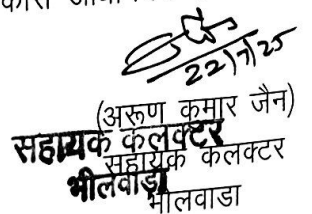 22/7/25
(अरूण कुमार जैन)
सहायक कलक्टर
सहायक कलक्टर
भीलवाड़ा
भीलवाडा